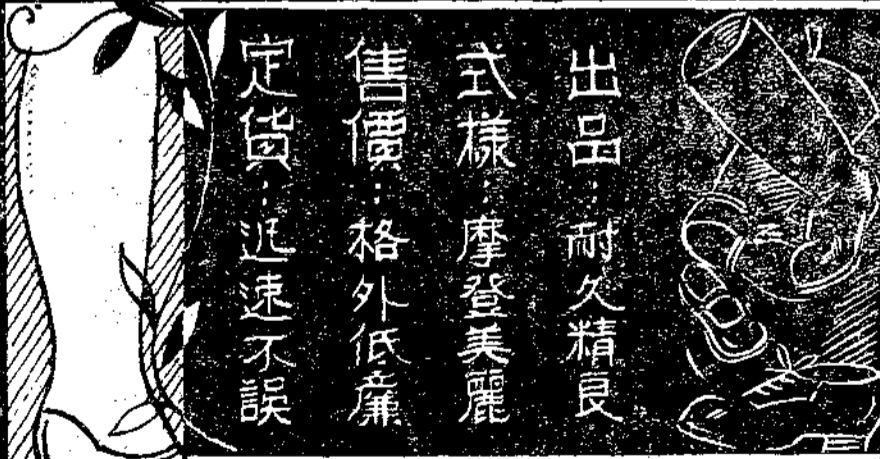 出品：耐久精良
式樣：摩登美麗
售價：格外低廉
定貨：迅速不誤